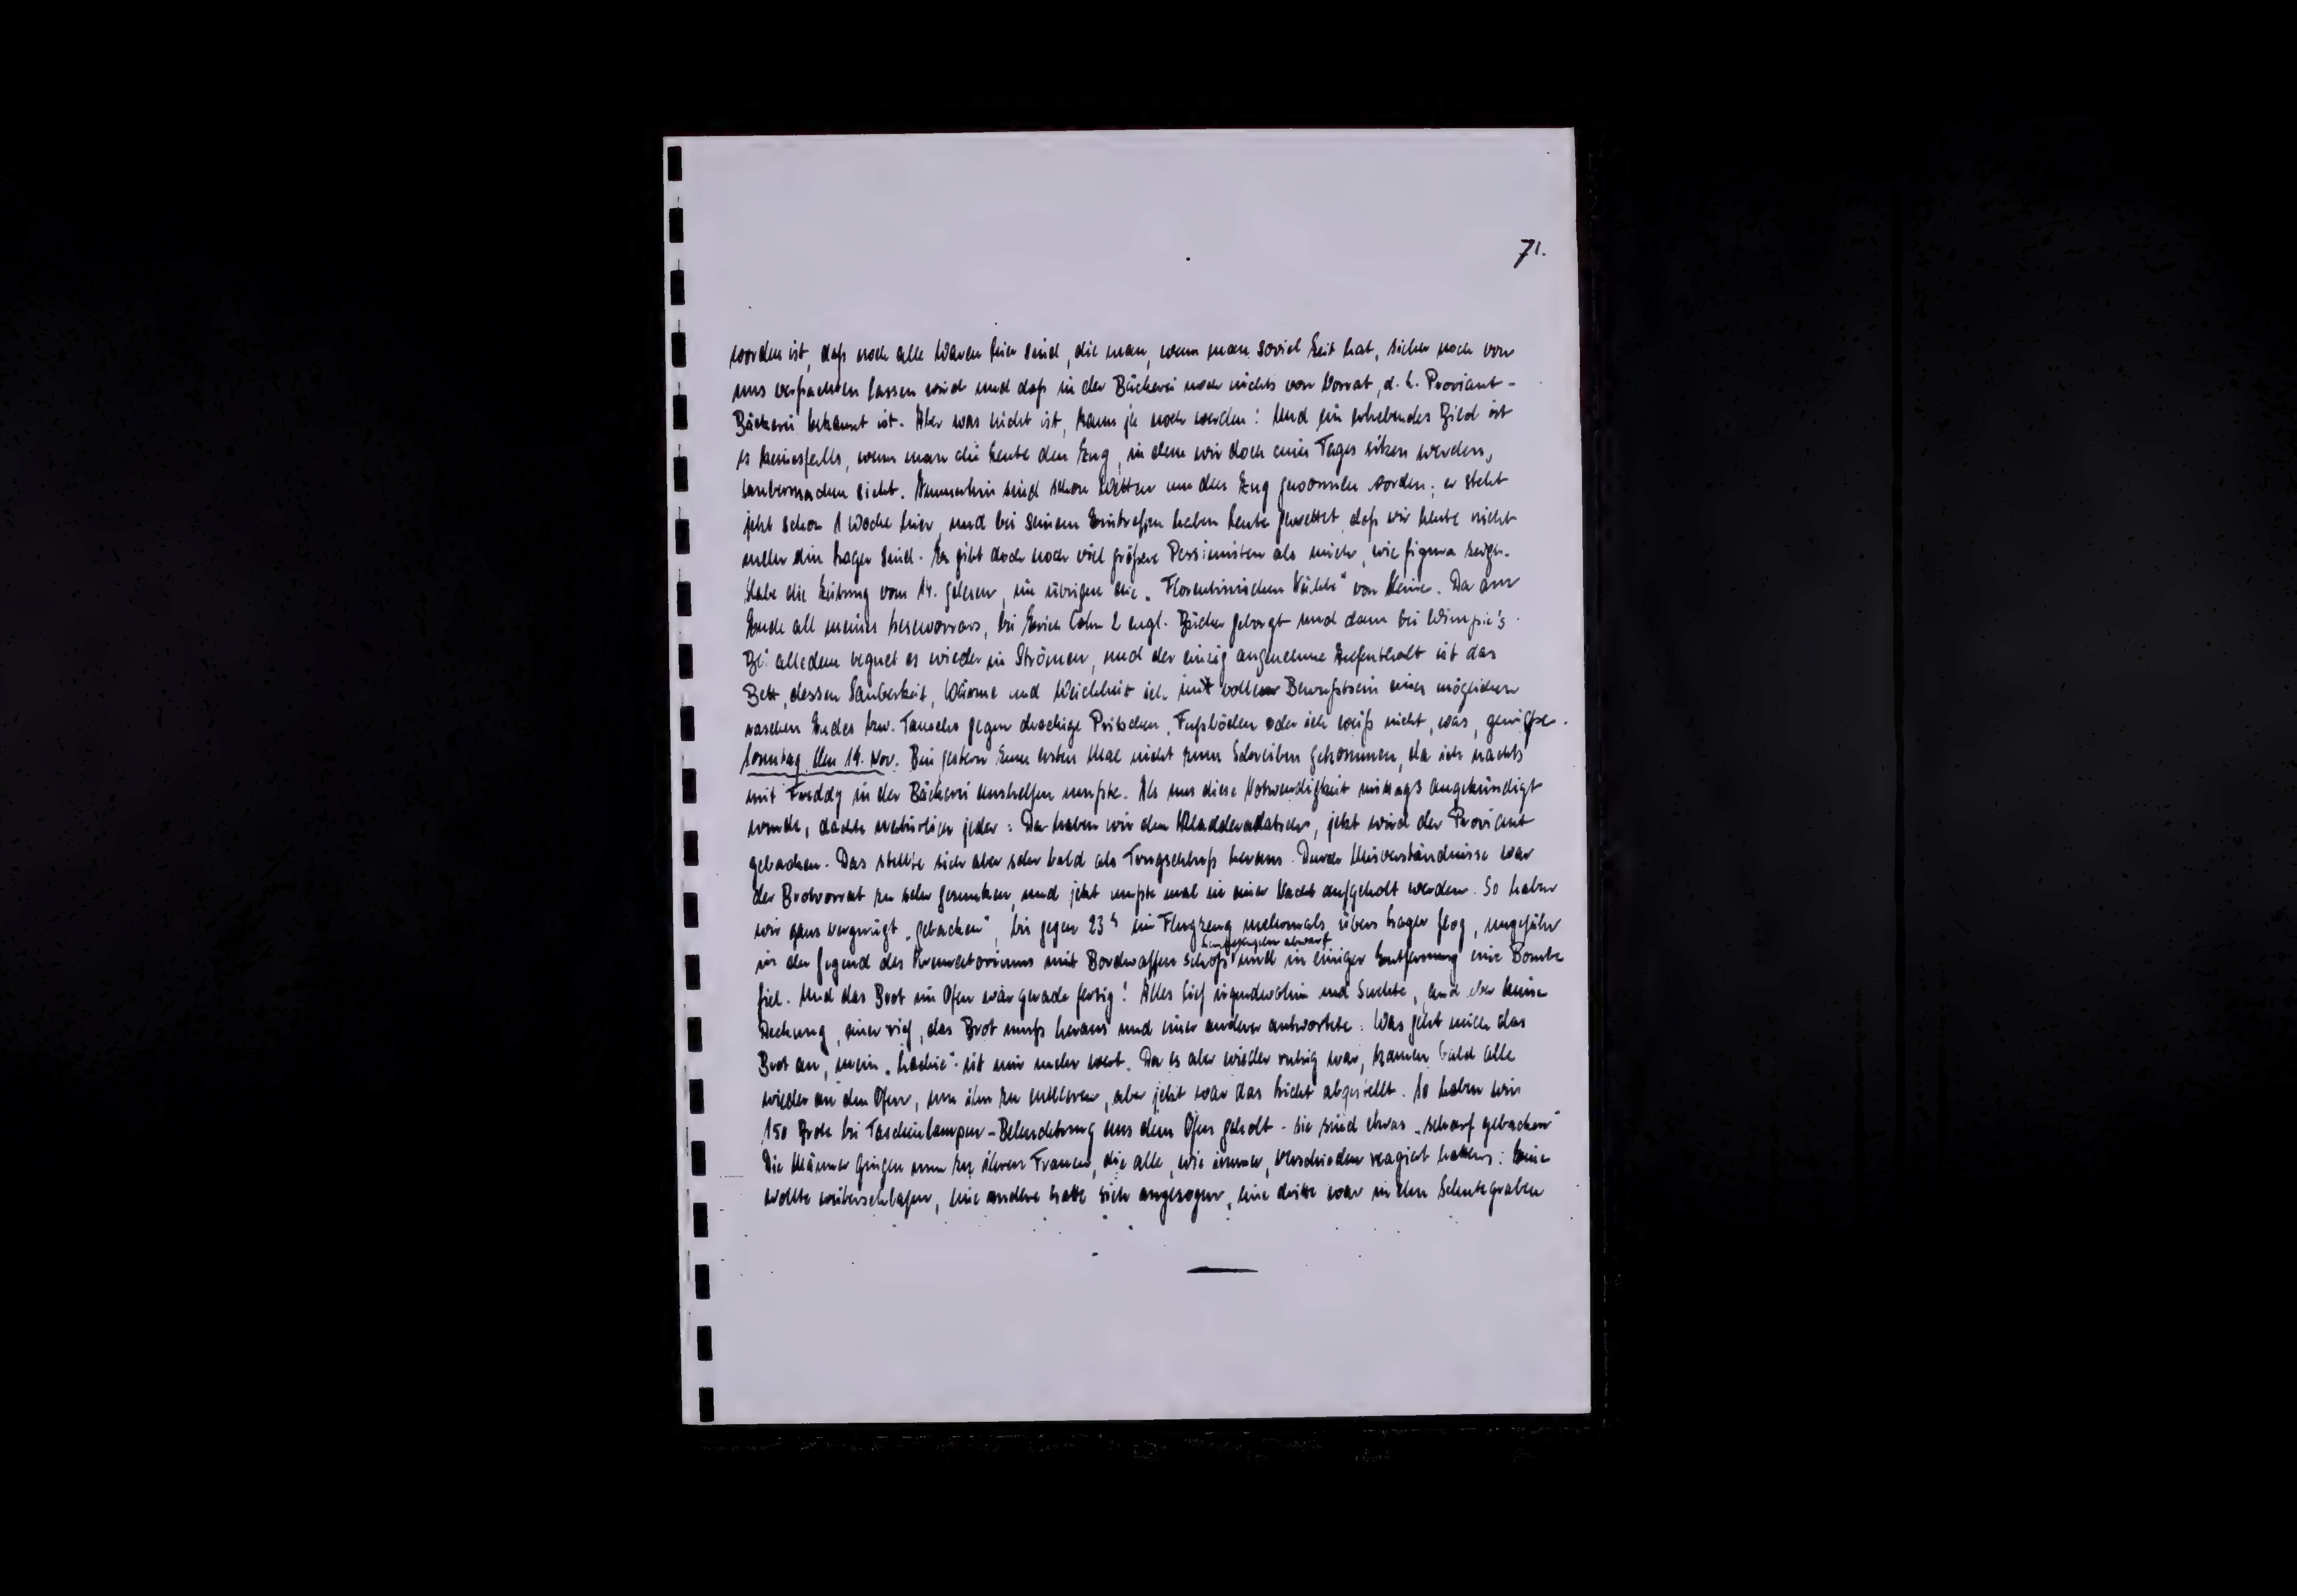 71.
worden ist, daß noch alle Waren hier sind, die man, wenn man soviel Zeit hat, sicher noch von
uns verfrachten lassen wird und daß in der Bäckerei noch nichts von Vorrat, d. h. Proviant-
Bäckerei bekannt ist. Aber was nicht ist, kann ja noch werden! Und ein erhebendes Bild ist
es keinesfalls, wenn man die Leute den Zug, in dem wir doch eines Tages sitzen werden,
saubermachen sieht. Immerhin sind schon Wetten um den Zug gewonnen worden; er steht
jetzt schon 1 Woche hier, und bei seinem Eintreffen haben Leute gewettet, daß wir heute nicht
mehr im Lager sind. Es gibt doch noch viel größere Pessimisten als mich, wie figura zeigt.
Habe die Zeitung vom 14. gelesen, im übrigen die „Florentinischen Nächte" von Heine. Da am
Ende all meines Lesevorrats, bei Erich Cohn 2 engl. Bücher geborgt und dann bei Wimpie's.
Bei alledem regnet es wieder in Strömen, und der einzig angenehme Aufenthalt ist das
Bett, dessen Sauberkeit, Wärme und Weichheit ich mit vollem Bewußtsein eines möglichen
raschen Endes bzw. Tauschs gegen dreckige Pritschen, Fußböden oder ich weiß nicht, was, genieße.
Sonntag, den 19. Nov. Bin gestern zum ersten Mal nicht zum Schreiben gekommen, da ich nachts
mit Freddy in der Bäckerei aushelfen mußte. Als uns diese Notwendigkeit mittags angekündigt
wurde, dachte natürlich jeder: Da haben wir den Kladderadatsch, jetzt wird der Proviant
gebacken. Das stellte sich aber sehr bald als Trugschluß heraus. Durch Misverständnisse war
der Brotvorrat zu sehr gesunken, und jetzt mußte mal in einer Nacht aufgeholt werden. So haben
wir ganz vergnügt „gebacken", bis gegen 23 h ein Flugzeug mehrmals übers Lager flog, ungefähr
in der Gegend des Krematoriums mit Bordwaffen schoß und in einiger Entfernung eine Bombe
fiel. Und das Brot im Ofen war gerade fertig! Alles lief irgendwohin und suchte, fand aber keine
Deckung, einer rief, das Brot muß heraus und einer anderer antwortete: Was geht mich das
Brot an, mein ist mir mehr wert. Da es aber wieder ruhig war, kamen bald alle
wieder an den Ofen, um ihn zu entleeren, aber jetzt war das Licht abgestellt. So haben wir
150 Brote bei Taschenlampen-Beleuchtung aus dem Ofen geholt - sie sind etwas „scharf gebacken"
Die Männer gingen nun zu ihren Frauen, die alle, wie immer, verschieden reagiert hatten: Eine
wollte weiterschlafen, eine andere hatte sich angezogen, eine dritte war in den Schutzgraben